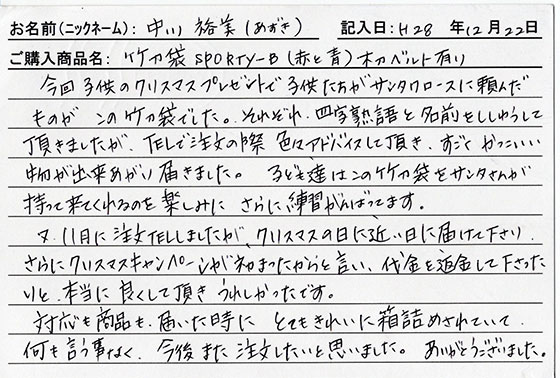 お名前(ニックネーム): 中川 裕美(あずき) 記入日: H28 年12月22日
ご購入商品名: 竹刀袋 SPORTY-B (赤と青) 木刀ベルト有り
今回子供のクリスマスプレゼントで子供たちがサンタクロースに頼んだ
ものが この竹刀袋でした。それぞれ、四字熟語と名前をししゅうして
頂きましたが、TELで注文の際 色々アドバイスして頂き、すごくかっこいい
物が出来あがり届きました。 子ども達はこの竹刀袋をサンタさんが
持って来てくれるのを楽しみに さらに練習がんばってます。
又、11月に注文TELしましたが、クリスマスの日に近い日に届けて下さり、
さらにクリスマスキャンペーンが始まったからと言い、代金を返金して下さった
りと、本当に良くして頂き うれしかったです。
対応も商品も、届いた時に とてもきれいに箱詰めされていて、
何も言う事なく、今後また注文したいと思いました。 ありがとうございました。